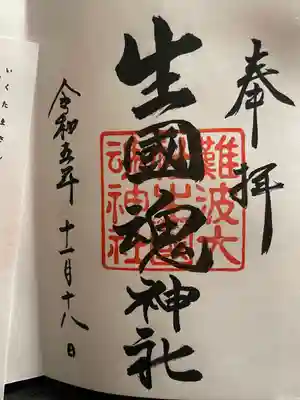 奉拝
難波大
生國魂神社
令和五年十一月十八日
いくたまさん